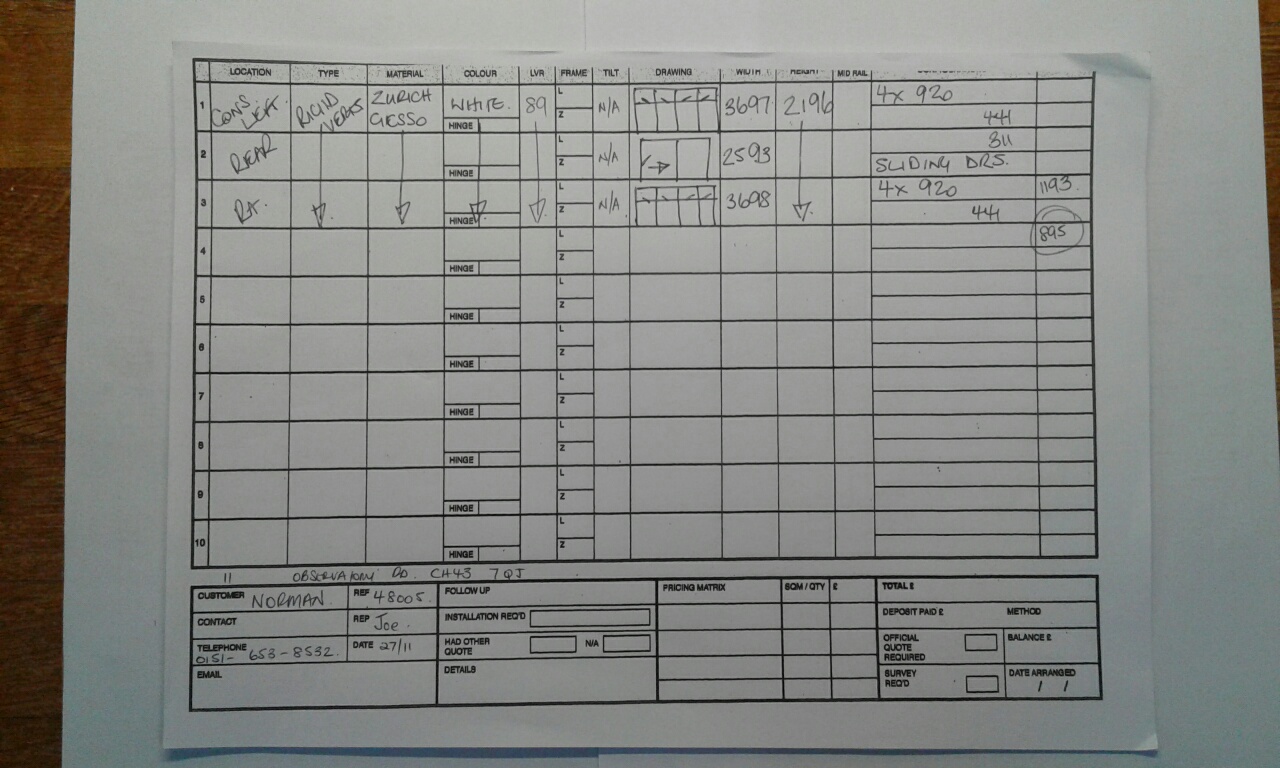 LOCATION TYPE MATERIAL COLOUR LVR FRAME TILT DRAWING WIDTH HEIGHT MID RAIL
1 CONS LEFT. RIGID VERTS ZURICH GESSO WHITE. HINGE 89 L Z N/A 3697 2196 4x 920
441
2 REAR HINGE L Z N/A 2593 311
SLIDING DRS.
3 Rt. HINGE L Z N/A 3698 4x 920 1193
441
4 HINGE L Z 895
5 HINGE L Z
6 HINGE L Z
7 HINGE L Z
8 HINGE L Z
9 HINGE L Z
10 HINGE L Z
11 OBSERVATORY RD. CH43 7QJ
CUSTOMER NORMAN. REF 48005.
CONTACT REP Joe.
TELEPHONE 0151- 653-8532. DATE 27/11
EMAIL
FOLLOW UP
INSTALLATION REQ'D
HAD OTHER QUOTE N/A
DETAILS
PRICING MATRIX SQM / QTY £
TOTAL £
DEPOSIT PAID £ METHOD
OFFICIAL QUOTE REQUIRED BALANCE £
SURVEY REQ'D DATE ARRANGED
/ /